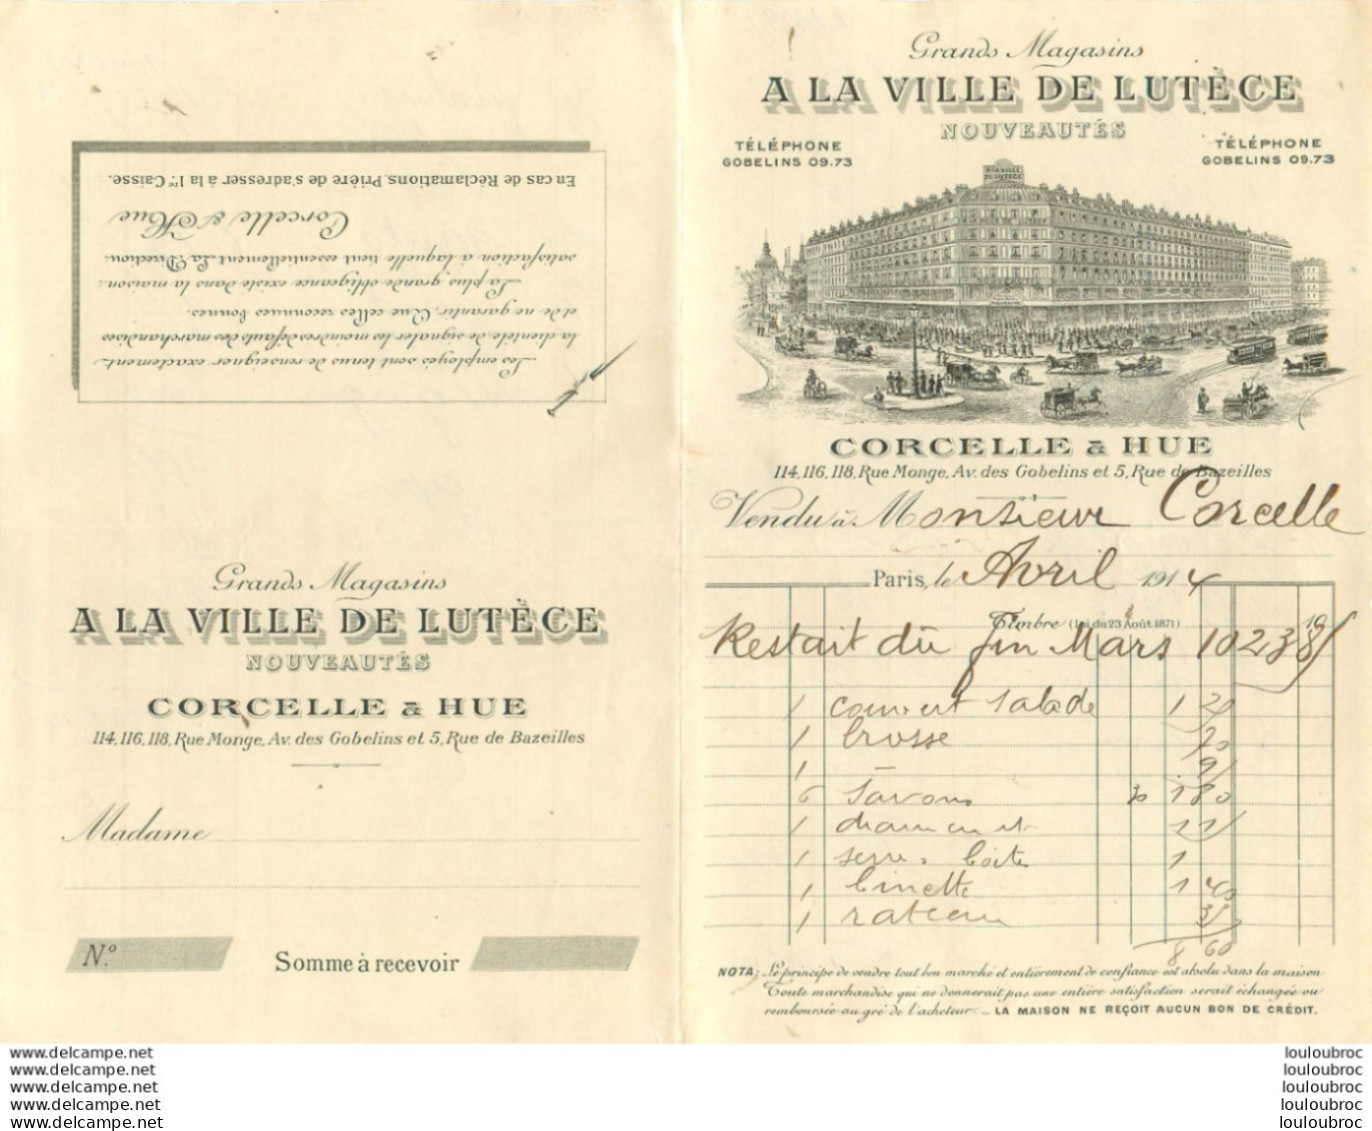 En cas de Réclamations. Prière de s'adresser à la 1re Caisse.
Corcelle & Hue
satisfaction à laquelle tient essentiellement La Direction.
La plus grande obligeance existe dans la maison:
et de ne garantir, Que celles reconnues bonnes.
la clientèle de signaler les moindres défauts des marchandises
Les employés sont tenus de renseigner exactement
Grands Magasins
A LA VILLE DE LUTÈCE
NOUVEAUTÉS
CORCELLE & HUE
114, 116, 118, Rue Monge, Av. des Gobelins et 5, Rue de Bazeilles
Madame
N.º
Somme à recevoir
Grands Magasins
A LA VILLE DE LUTÈCE
NOUVEAUTÉS
TÉLÉPHONE
GOBELINS 09.73
TÉLÉPHONE
GOBELINS 09.73
A LA VILLE
DE LUTÈCE
CORCELLE & HUE
114, 116, 118, Rue Monge, Av. des Gobelins et 5, Rue de Bazeilles
Vendu à Monsieur Corcelle
Paris, le Avril 1914
Timbre (Loi du 23 Août 1871) 10
Restait dû fin Mars 1023 85
1 couvert salade 1 20
1 brosse
1
6 savons 30 1 80
1
1 serre boite 1
1 binette 1 40
1 rateau
8 60
NOTA: Le principe de vendre tout bon marché et entièrement de confiance est absolu dans la maison
Toute marchandise qui ne donnerait pas une entière satisfaction serait échangée ou
remboursée au gré de l'acheteur._ LA MAISON NE REÇOIT AUCUN BON DE CRÉDIT.
www.delcampe.net
www.delcampe.net
www.delcampe.net
www.delcampe.net
www.delcampe.net
louloubroc
louloubroc
louloubroc
louloubroc
louloubroc